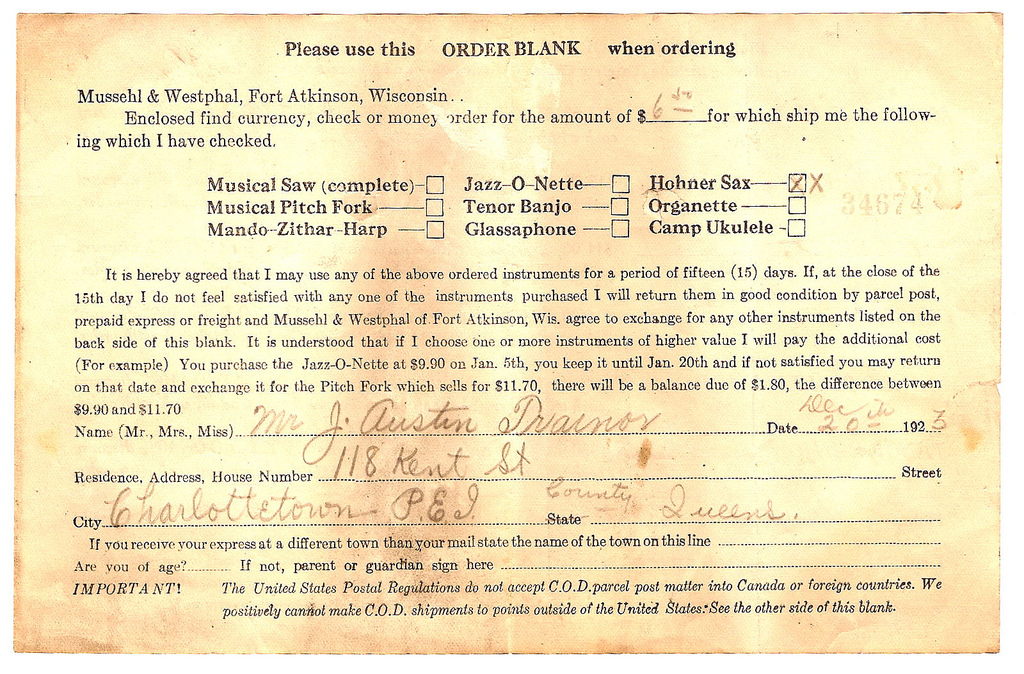 Please use this ORDER BLANK when ordering
Mussehl & Westphal, Fort Atkinson, Wisconsin. .
Enclosed find currency, check or money order for the amount of $ 6 50 for which ship me the follow-
ing which I have checked.
Musical Saw (complete)-☐ Jazz-O-Nette—☐ Hohner Sax—☒ X
Musical Pitch Fork —☐ Tenor Banjo —☐ Organette —☐
Mando-Zithar-Harp —☐ Glassaphone —☐ Camp Ukulele -☐
34674
It is hereby agreed that I may use any of the above ordered instruments for a period of fifteen (15) days. If, at the close of the
15th day I do not feel satisfied with any one of the instruments purchased I will return them in good condition by parcel post,
prepaid express or freight and Mussehl & Westphal of Fort Atkinson, Wis. agree to exchange for any other instruments listed on the
back side of this blank. It is understood that if I choose one or more instruments of higher value I will pay the additional cost
(For example) You purchase the Jazz-O-Nette at $9.90 on Jan. 5th, you keep it until Jan. 20th and if not satisfied you may return
on that date and exchange it for the Pitch Fork which sells for $11.70, there will be a balance due of $1.80, the difference between
$9.90 and $11.70
Name (Mr., Mrs., Miss) Mr J. Austin Trainor Date Dec 20th 1923
Residence, Address, House Number 118 Kent St Street
City Charlottetown P.E.I State County Queens.
If you receive your express at a different town than your mail state the name of the town on this line
Are you of age? If not, parent or guardian sign here
IMPORTANT! The United States Postal Regulations do not accept C.O.D. parcel post matter into Canada or foreign countries. We
positively cannot make C.O.D. shipments to points outside of the United States. See the other side of this blank.